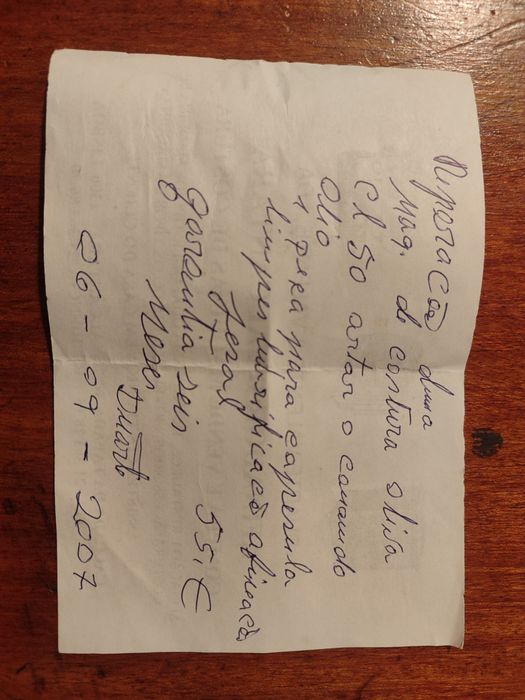 Riparacão duma
Maq. de costura oliva
Cl 50 artar o comando
Olio
1 peça para capesula
limpes lubrificacão afinacão
geral
garantia seis 55.€
Meses
Duarte
06-09-2007